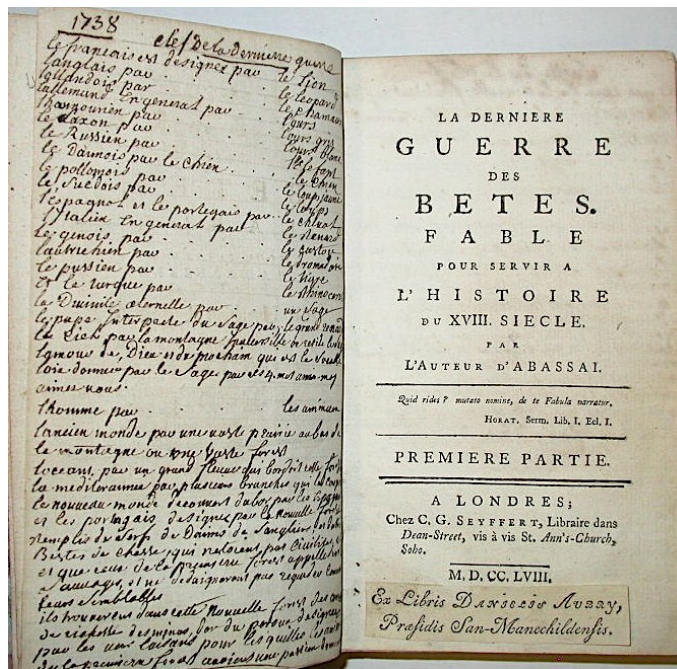 1738
clef de la derniere guerre
le francais est designer par le Lion
langlais par le leopard
lallemand en general par
lhannovrien par lours
le saxon par lours gris
le Russien par lours blanc
le Dannois par le chien
le pollonois le chien
le suedois par le loup
l'espagnol et le portegais par
l'Italien en general par le Renard
le genois par
lautrichien par le dromadaire
le prussien par le tigre
et le turque par le Rhinoceros
la Divinité æternelle par un Sage
le pape Interprete du Sage par le grand
lamour de Dieu et du procham qui est la
loie donnee par le Sage par ces 4 mots
aimes vous
l'homme par les animaux
lancien monde par une vaste prairie au bas de
la montagne ou une vaste forest
loceant, par un grand fleuve qui bordoit cette forest
la mediterannee par plusieurs branches qui
le nouveau monde decouvert dabor par les
et les portugais designer par la nouvelle forest
remplis de Cerfs de Daims de Sangliers
Bestes de chasse qui netoient pas civilisés
et que ceux de la premiere forest appelloient
Sauvages, et ne daignoient pas regarder comme
leurs semblables
ils trouverent dans cette Nouvelle forest
de richesse des mines, d'or du perou designer
par les pour lesquelles les
de la premiere forest
LA DERNIERE
GUERRE
DES
BETES.
FABLE
POUR SERVIR A
L'HISTOIRE
DU XVIII. SIECLE.
PAR
L'AUTEUR D'ABASSAI.
Quid rides? mutato nomine, de te Fabula narratur.
HORAT. Serm. Lib. I. Ecl. I.
PREMIERE PARTIE.
A LONDRES;
Chez C. G. SEYFFERT, Libraire dans
Dean-Street, vis à vis St. Ann's-Church,
Soho.
M. D. CC. LVIII.
Ex Libris DANIELIS AUBRY,
Præsidis San-Manechildensis.